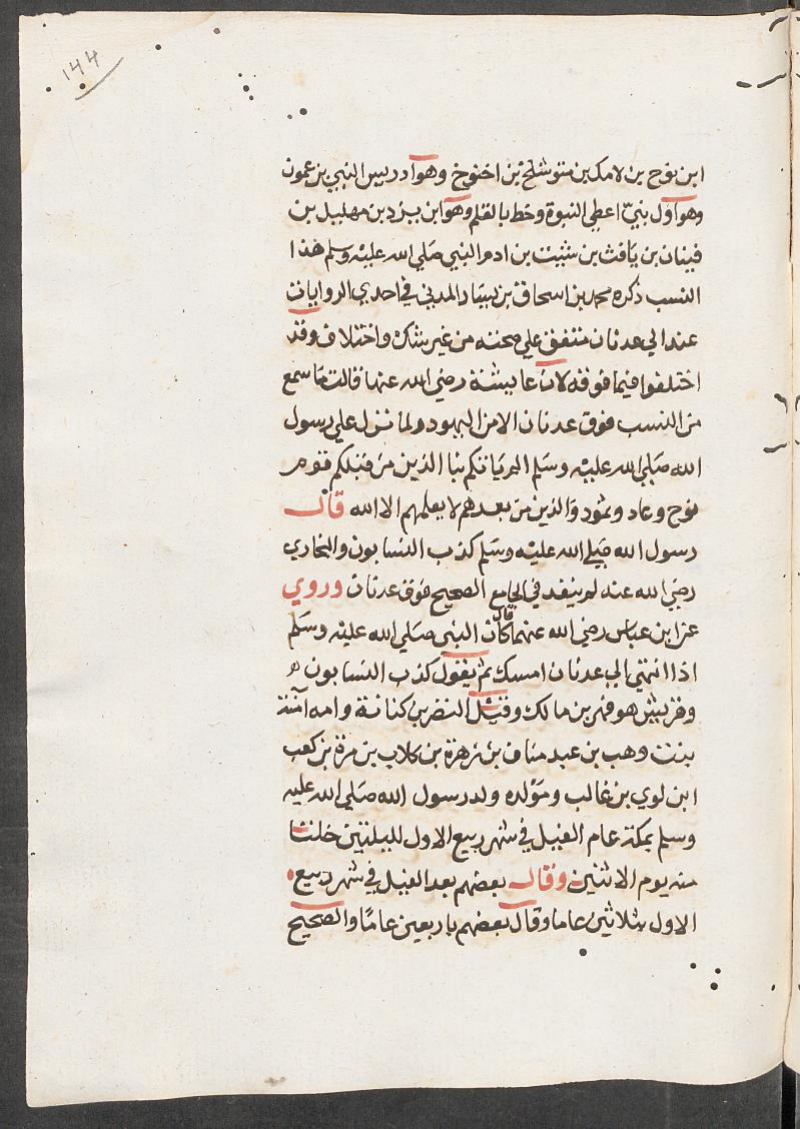 ١٤٤
ابن نوح بن لامك بن متوشلخ بن اخنوخ وهو ادريس النبي بن عمون
وهو اول بني اعطي النبوة وخط بالقلم وهو ابن يزد بن مهليل بن
قينان بن يافث بن شيث بن ادم النبي صلي الله عليه وسلم هذا
النسب ذكره محمد بن اسحاق بن يسار المدني في احدي الروايات
عند الي عدنان متفق علي صحته من غير شك واختلاف وقد
اختلفوا فيما فوقه لان عايشة رضي الله عنها قالت ما سمع
من النسب فوق عدنان الا من اليهود ولما نزل علي رسول
الله صلي الله عليه وسلم الم ياتكم نبا الذين من قبلكم قوم
نوح وعاد وثمود والذين من بعدهم لا يعلمهم الا الله قال
رسول الله صلي الله عليه وسلم كذب النسابون والبخاري
رضي الله عنه لم يتعد في الجامع الصحيح فوق عدنان وروي
عن ابن عباس رضي الله عنهما قال كان النبي صلي الله عليه وسلم
اذا انتهي الي عدنان امسك ثم يقول كذب النسابون ه
وقريش هو فهر بن مالك وقيل النضر بن كنانة وامه آمنة
بنت وهب بن عبد مناف بن زهرة بن كلاب بن مرة بن كعب
ابن لوي بن غالب ومولده ولد رسول الله صلي الله عليه
وسلم بمكة عام الفيل في شهر ربيع الاول لليلتين خلتا
منه يوم الاثنين وقال بعضهم بعد الفيل في شهر ربيع
الاول بثلاثين عاما وقال بعضهم باربعين عامًا والصحيح